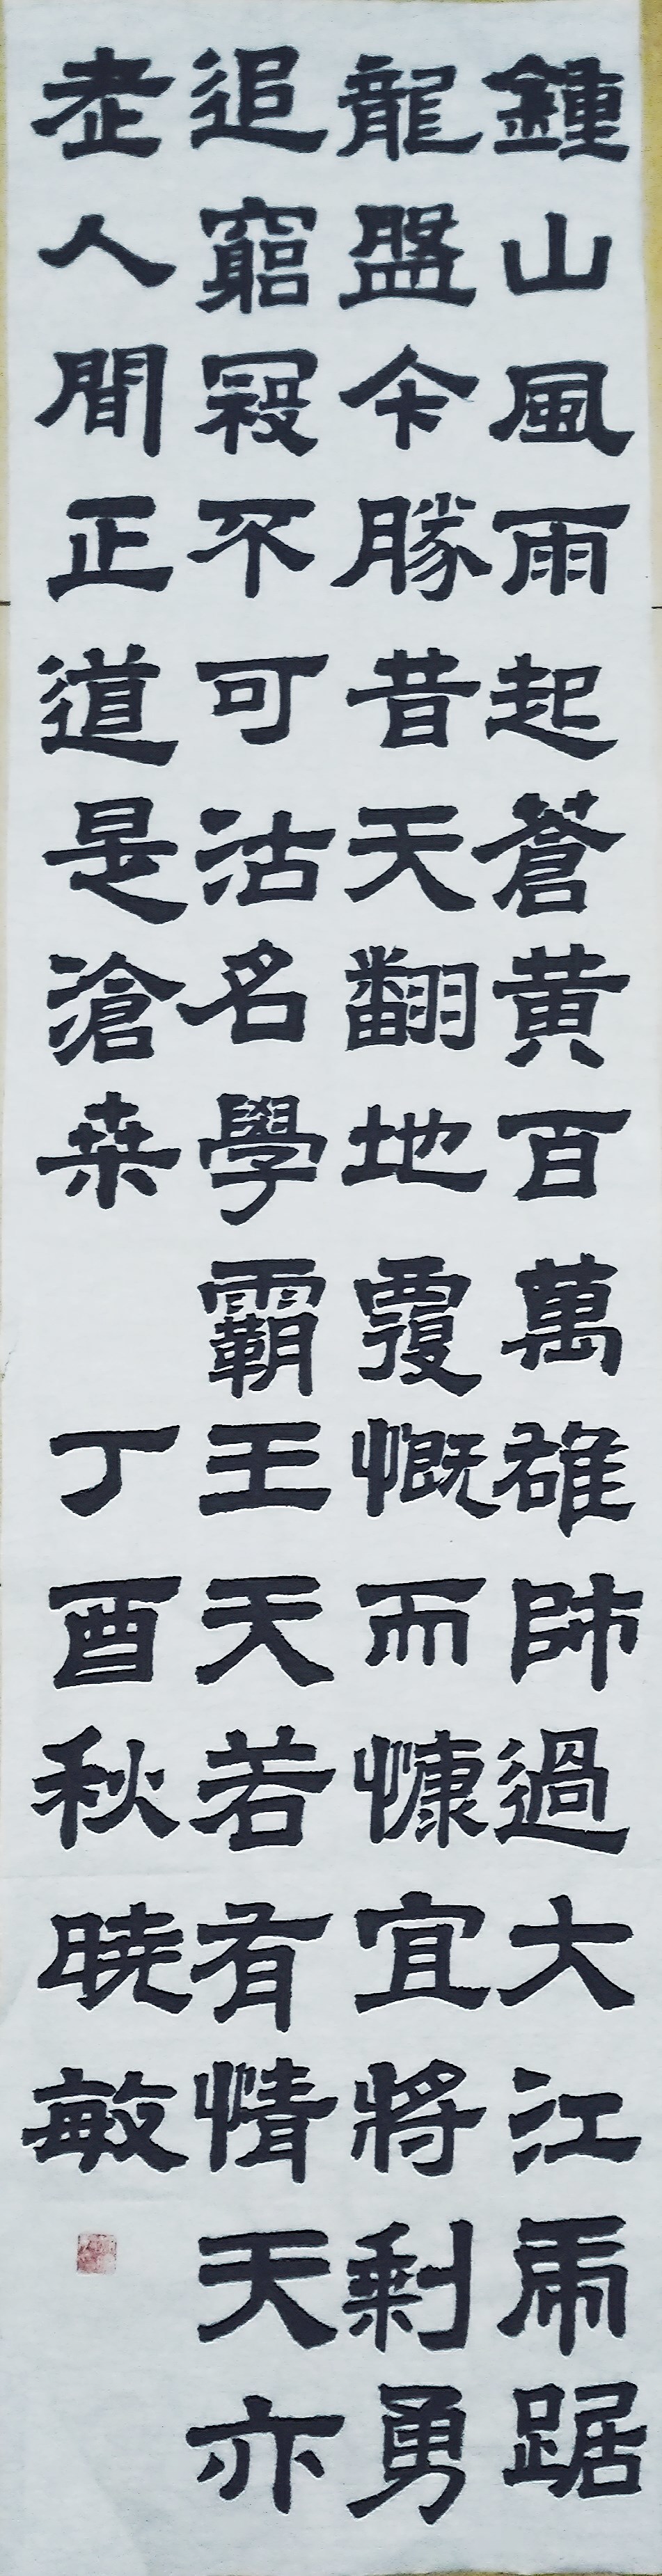 鍾山風雨起蒼黃百萬雄師過大江虎踞
龍盤今勝昔天翻地覆慨而慷宜將剩勇
追窮寇不可沽名學霸王天若有情天亦
老人間正道是滄桑
丁酉秋曉敏